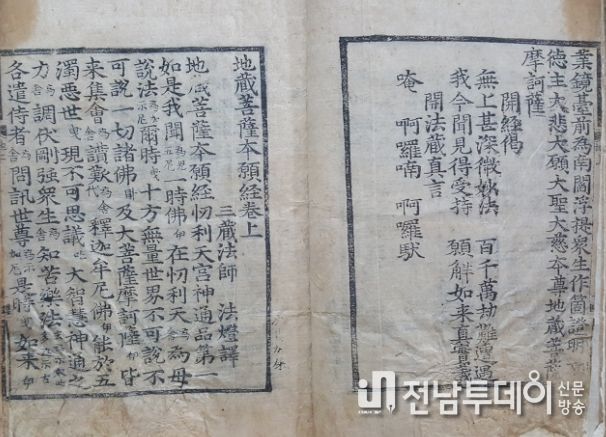 業鏡臺前為南閻浮提衆生作箇證明
德主大悲大願大聖大慈本尊地蔵菩薩
摩訶薩
開經偈
無上甚深微妙法 百千萬劫難遭遇
我今聞見得受持 願解如来真實義
開法蔵真言
唵 啊囉喃 啊囉馱
地蔵菩薩本願經卷上
三蔵法師 法燈譯
地蔵菩薩本願經忉利天宮神通品第一
如是我聞 時佛 在忉利天 為母
說法 爾時 十方無量世界不可說不
可說一切諸佛 及大菩薩摩訶薩 皆
来集會 讚歎 釋迦牟尼佛 能於五
濁惡世 現不可思議 大智慧神通之
力 調伏剛強衆生 知苦樂法
各遣侍者 問訊世尊 是時 如来
전남투데이 신문
방송